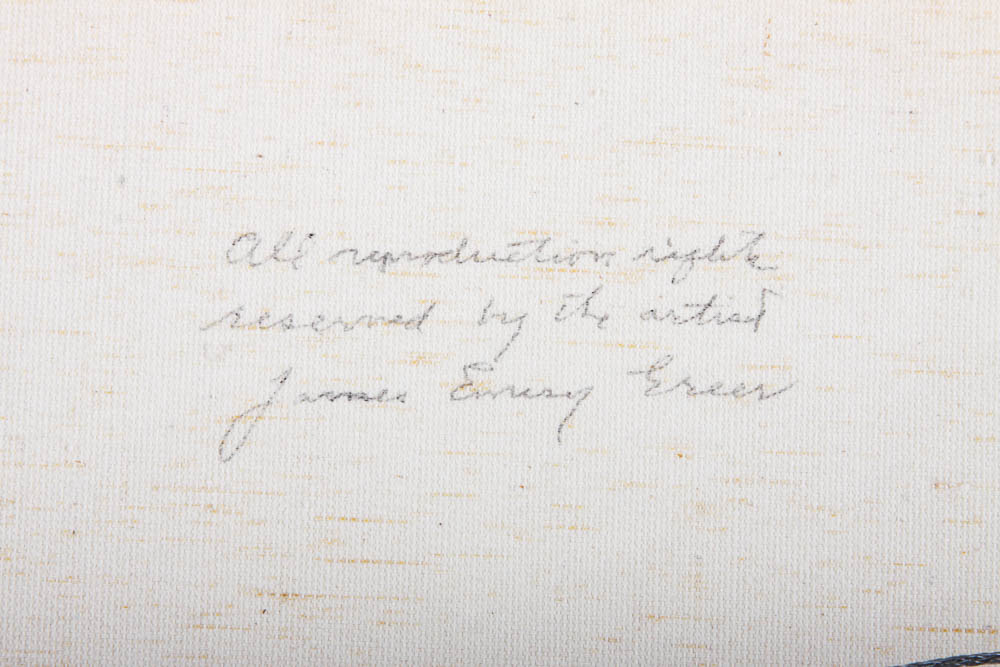 All reproduction rights
reserved by the artist
James Emery Greer